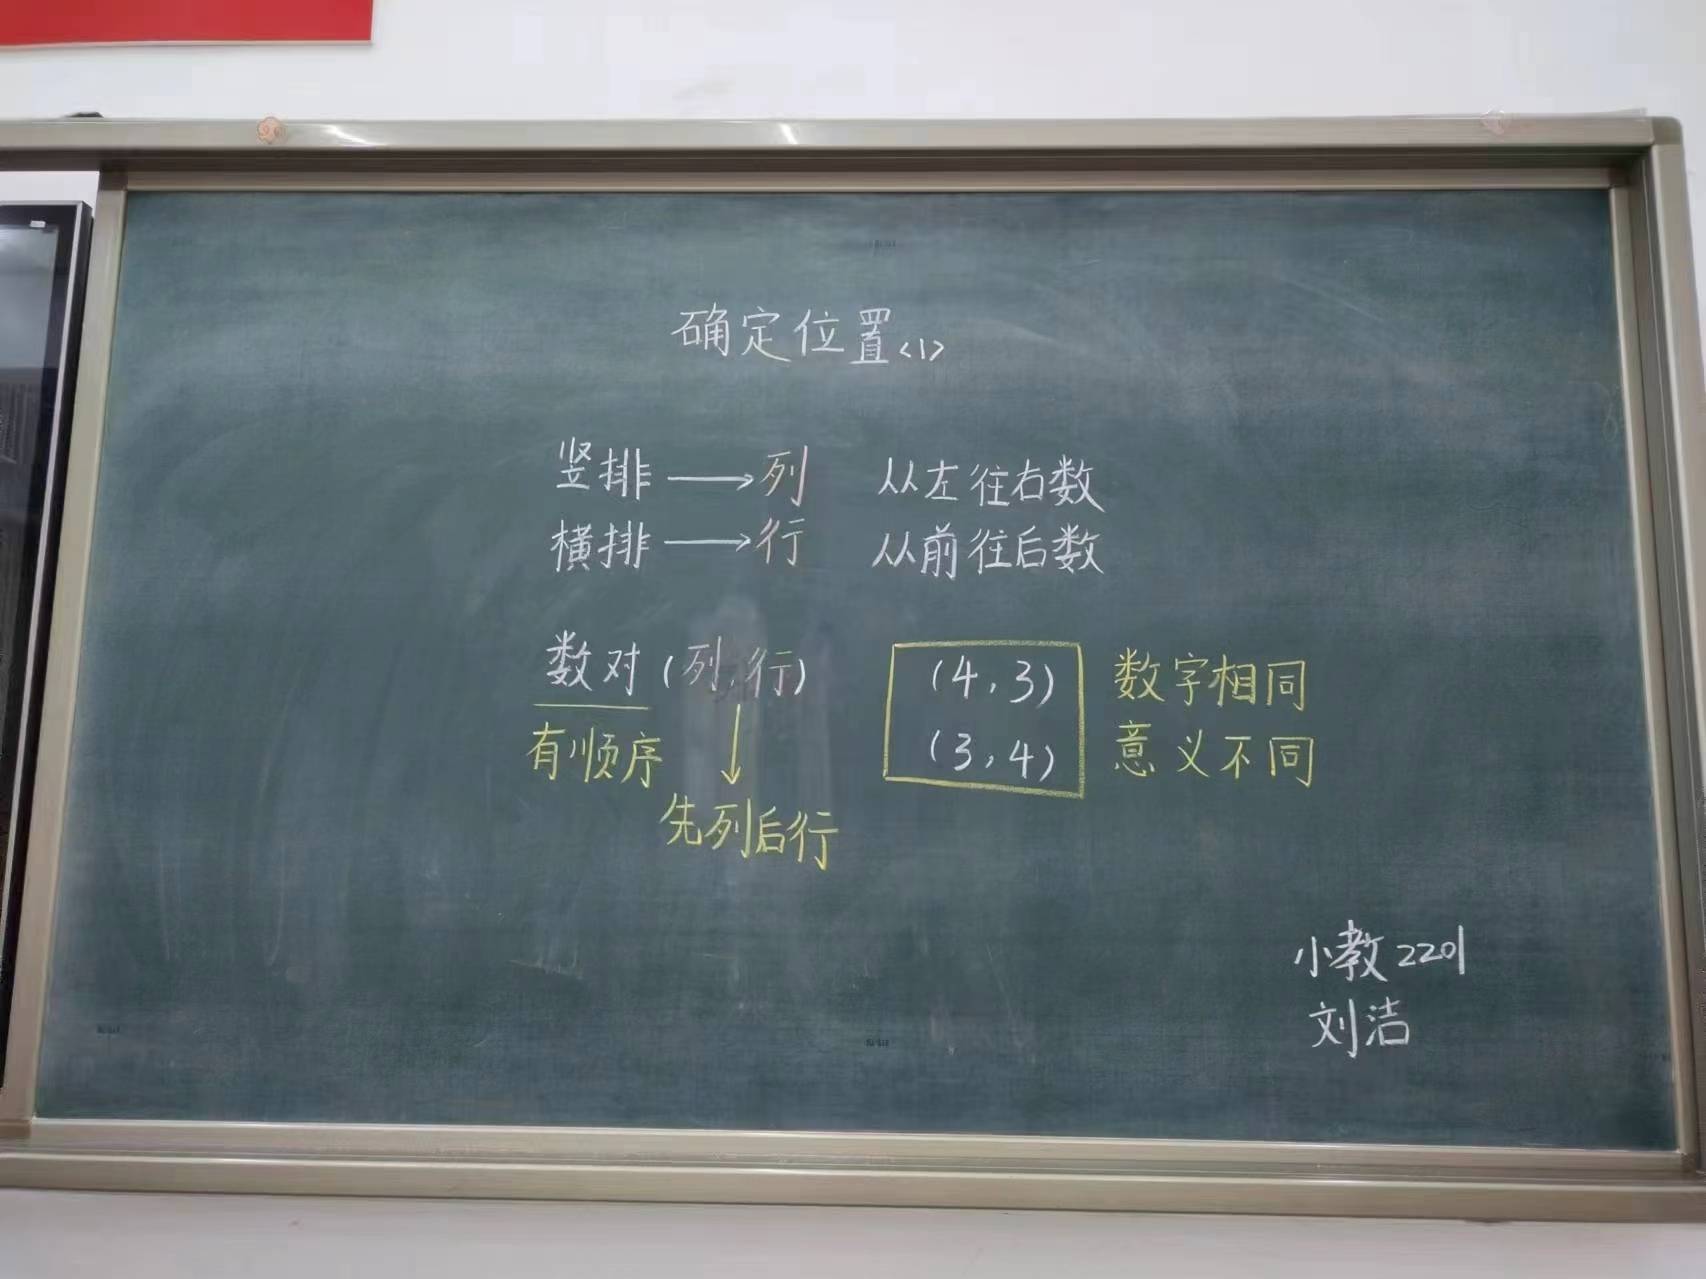 确定位置<1>
竖排→列 从左往右数
横排→行 从前往后数
数对(列,行) (4,3) 数字相同
有顺序 (3,4) 意义不同
先列后行
小教2201
刘洁